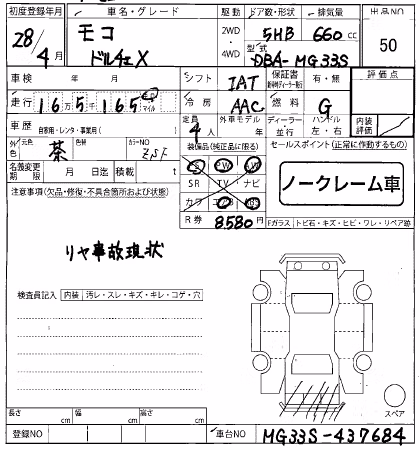 初度登録年月 車名・グレード 駆動 ドア数・形状 排気量 出品NO
28/4月 モコ ドルチェX 2WD・4WD 5HB 660cc 50
型式 DBA-MG33S
車検 年 月 シフト IAT 保証書 有・無 評価点
走行 16万5千165 km マイル 冷房 AAC 燃料 G
車歴 自家用・レンタ・事業用( ) 定員 4人 外車モデル 年 ディーラー 並行 ハンドル 左・右 内装評価
外色 元色 茶 色替 カラーNO ZSF
装備品(純正品に限る) セールスポイント(正常に作動するもの)
名義変更期限 月 日迄 積載 t
PS PW
SR TV ナビ
カワ
ノークレーム車
R券 8580円
注意事項(欠品・修復・不具合箇所および状態)
Fガラス トビ石・キズ・ヒビ・ワレ・リペア跡
リヤ事故現状
検査員記入 内装 汚レ・スレ・キズ・キレ・コゲ・穴
スペア
長さ cm 幅 cm 高さ cm
登録NO 車台NO MG33S-437684